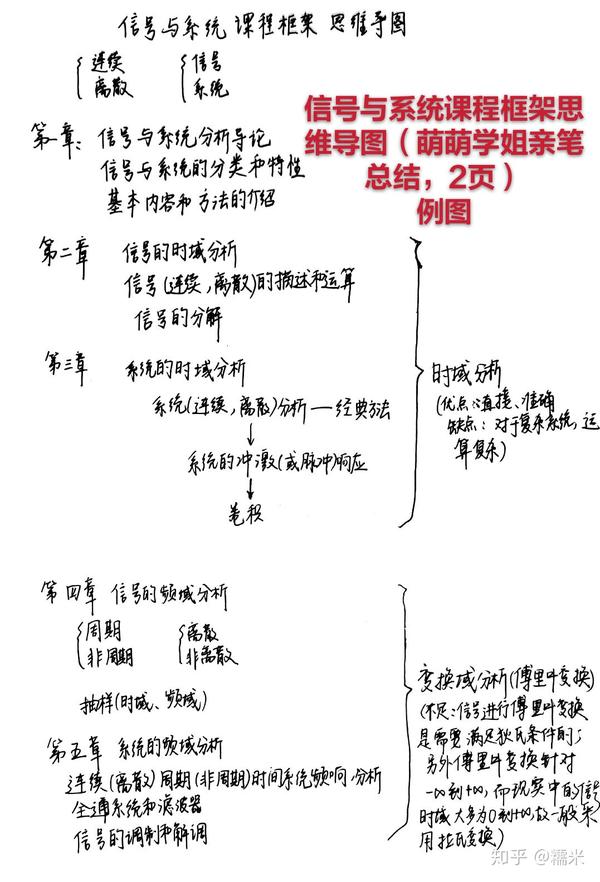 信号与系统课程框架 思维导图
连续 信号
离散 系统
信号与系统课程框架思
维导图（萌萌学姐亲笔
总结，2页）
例图
第一章：信号与系统分析导论
信号与系统的分类和特性
基本内容和方法的介绍
第二章 信号的时域分析
信号(连续,离散)的描述和运算
信号的分解
第三章 系统的时域分析
系统(连续,离散)分析—经典方法
系统的冲激(或脉冲)响应
卷积
时域分析
(优点:直接、准确
缺点:对于复杂系统,运
算复杂)
第四章 信号的频域分析
周期 离散
非周期 非离散
抽样(时域、频域)
第五章 系统的频域分析
连续(离散)周期(非周期)时间系统频响,分析
全通系统和滤波器
信号的调制和解调
变换域分析(傅里叶变换)
(不足:信号进行傅里叶变换
是需要满足狄氏条件的;
另外傅里叶变换针对
-∞到+∞,而现实中的信号
时域大多为0到+∞,故一般采
用拉氏变换)
知乎 @糯米